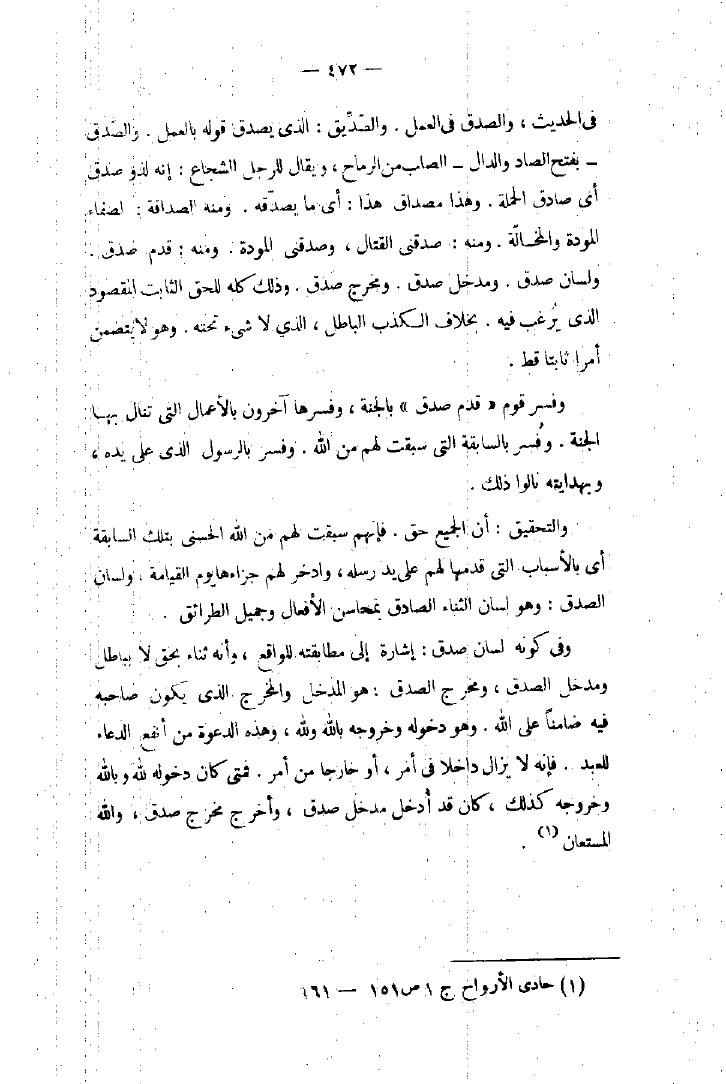 — ٤٧٢ —
فى الحديث ، والصدق فى العمل . والصّدِّيق : الذى يصدق قوله بالعمل . والصّدق
— بفتح الصاد والدال — الصلب من الرماح ، ويقال للرجل الشجاع : إنه لذو صدق
أى صادق الحملة . وهذا مصداق هذا : أى ما يصدّقه . ومنه الصداقة : لصفاء
المودة والمخالّة . ومنه : صدقنى القتال ، وصدقنى المودة . ومنه : قدم صدق .
ولسان صدق . ومدخل صدق . ومخرج صدق . وذلك كله للحق الثابت المقصود
الذى يُرغب فيه . بخلاف الكذب الباطل ، الذي لا شىء تحته . وهو لا يتضمن
أمرا ثابتا قط .
وفسر قوم « قدم صدق » بالجنة ، وفسرها آخرون بالأعمال التى تنال بها
الجنة . وفُسر بالسابقة التى سبقت لهم من الله . وفسر بالرسول الذى على يده ،
وبهدايته نالوا ذلك .
والتحقيق : أن الجميع حق . فإنهم سبقت لهم من الله الحسنى بتلك السابقة
أى بالأسباب التى قدمها لهم على يد رسله ، وادخر لهم جزاءها يوم القيامة . ولسان
الصدق : وهو لسان الثناء الصادق بمحاسن الأفعال وجميل الطرائق .
وفى كونه لسان صدق : إشارة إلى مطابقته للواقع ، وأنه ثناء بحق لا بباطل
ومدخل الصدق ، ومخرج الصدق : هو المدخل والمخرج الذى يكون صاحبه
فيه ضامناً على الله . وهو دخوله وخروجه بالله ولله ، وهذه الدعوة من أنفع الدعاء
للعبد . فإنه لا يزال داخلا فى أمر ، أو خارجا من أمر . فمتى كان دخوله لله وبالله
وخروجه كذلك ، كان قد أُدخل مدخل صدق ، وأخرج مخرج صدق ، والله
المستعان (١) .
(١) حادى الأرواح ج ١ ص ١٥١ — ١٦١